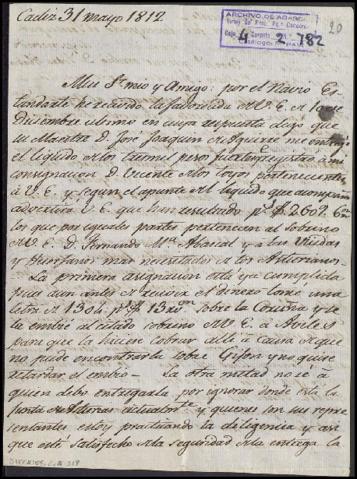 Cadiz 31 mayo 1812
ARCHIVO DE ABASCAL
4 2 782
20
Muy Sr mio y Amigo: por el Navio Es-
tandarte he recivido la favorecida de V. E. de 10 de
Diciembre ultimo en cuya respuesta digo que
el Maestre D. Jose Joaquin de Aguirre me entregó
el liquido de los tres mil pesos fuertes registrados à mi
consignacion D. Vicente de los pertenecientes
à V. E. y segun el apunte del liquido que
V. E. que han resultado 2602
los que por iguales partes pertenecen al sobrino
de V. E. D. Fernando Ma Abascal y à las Viudas
y Huerfanos mas necesitados de los Asturianos
La primera asignacion está ya cumplida
pues aun antes de recivir el dinero tomé una
letra de 1301 sobre la Coruña y se
la embié al citado sobrino de V. E. à Aviles
para que la hiciese cobrar alli à causa de que
no pude encontrarla sobre Gijon y no quise
retardar el embio - La otra mitad no sé à
quien debo entregarla por ignorar donde está la
Junta de actual y quienes son sus repre-
sentantes estoy practicando la deligencia y asi
que esté satisfecho de la seguridad de la entrega la